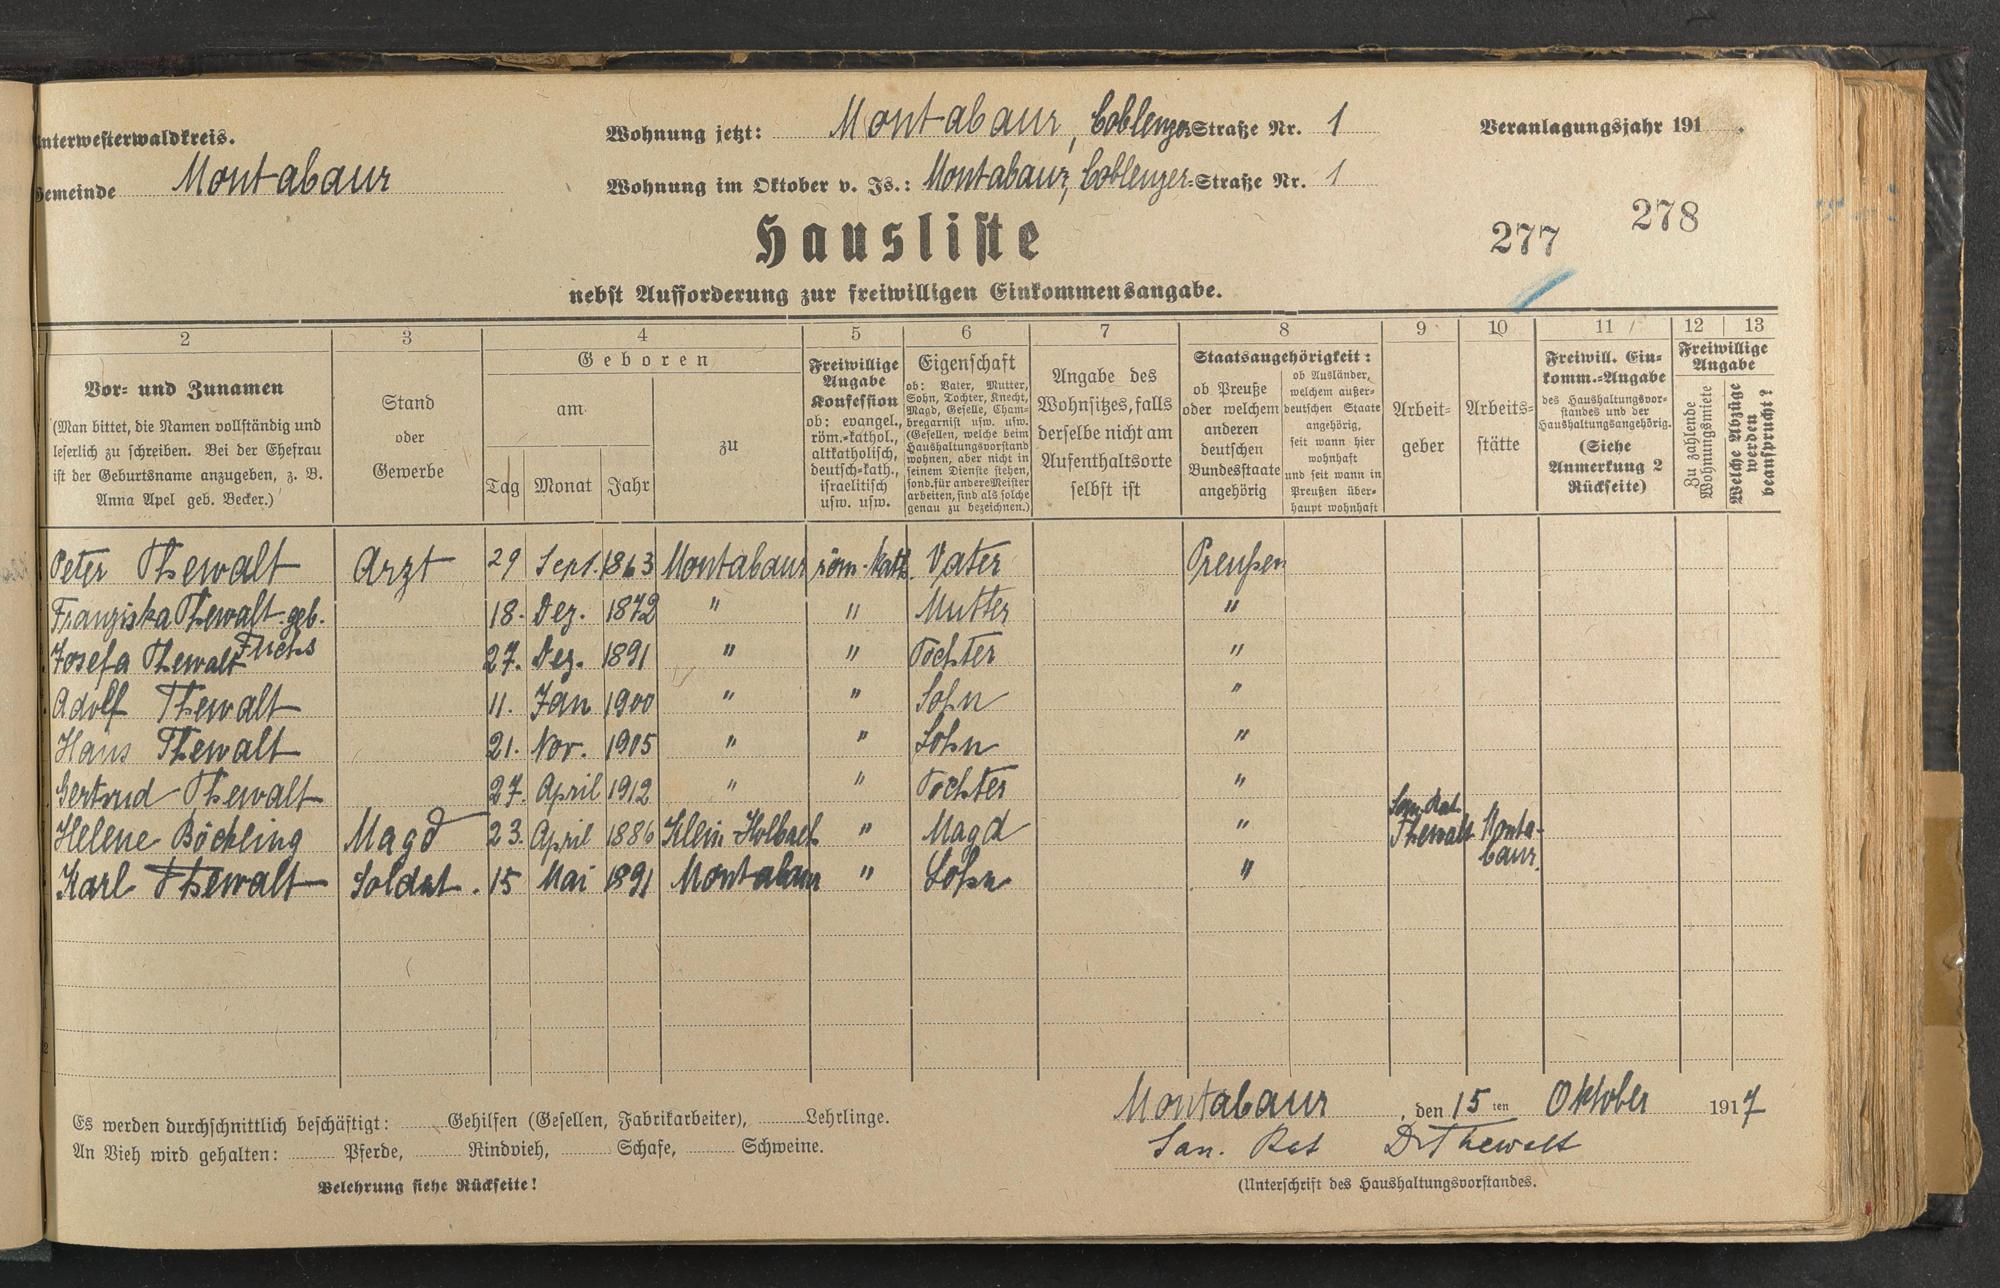 Unterwesterwaldkreis.
Gemeinde Montabaur
Wohnung jetzt: Montabaur, Coblenzer Straße Nr. 1
Wohnung im Oktober v. Js.: Montabaur, Coblenzer-Straße Nr. 1
Veranlagungsjahr 191 .
277 278
Hausliste
nebst Aufforderung zur freiwilligen Einkommensangabe.
2 3 4 5 6 7 8 9 10 11 12 13
Vor- und Zunamen
(Man bittet, die Namen vollständig und
leserlich zu schreiben. Bei der Ehefrau
ist der Geburtsname anzugeben, z. B.
Anna Apel geb. Becker.)
Stand
oder
Gewerbe
Geboren
am
Tag Monat Jahr
zu
Freiwillige
Angabe
Konfession
ob: evangel.,
röm.-kathol.,
altkatholisch,
deutsch-kath.,
israelitisch
usw. usw.
Eigenschaft
ob: Vater, Mutter,
Sohn, Tochter, Knecht,
Magd, Geselle, Cham-
bregarnist usw. usw.
(Gesellen, welche beim
Haushaltungsvorstand
wohnen, aber nicht in
seinem Dienste stehen,
sond. für andere Meister
arbeiten, sind als solche
genau zu bezeichnen.)
Angabe des
Wohnsitzes, falls
derselbe nicht am
Aufenthaltsorte
selbst ist
Staatsangehörigkeit:
ob Preuße
oder welchem
anderen
deutschen
Bundesstaate
angehörig
ob Ausländer,
welchem außer-
deutschen Staate
angehörig,
seit wann hier
wohnhaft
und seit wann in
Preußen über-
haupt wohnhaft
Arbeit-
geber
Arbeits-
stätte
Freiwill. Ein-
komm.-Angabe
des Haushaltungsvor-
standes und der
Haushaltungsangehörig.
(Siehe
Anmerkung 2
Rückseite)
Freiwillige
Angabe
Zu zahlende
Wohnungsmiete
Welche Abzüge
werden
beansprucht?
Peter Thewalt Arzt 29 Sept. 1863 Montabaur röm.-kath. Vater Preußen
Franziska Thewalt geb. 18. Dez. 1872 " " Mutter "
Fuchs
Josefa Thewalt 27. Dez. 1891 " " Tochter "
Adolf Thewalt 11. Jan 1900 " " Sohn "
Hans Thewalt 21. Nov. 1905 " " Sohn "
Gertrud Thewalt 27. April 1912 " " Tochter "
Helene Böckling Magd 23. April 1886 Klein-Holbach " Magd " San. Rat Thewalt Montabaur.
Karl Thewalt Soldat. 15 Mai 1891 Montabaur " Sohn "
Es werden durchschnittlich beschäftigt: Gehilfen (Gesellen, Fabrikarbeiter), Lehrlinge.
An Vieh wird gehalten: Pferde, Rindvieh, Schafe, Schweine.
Belehrung siehe Rückseite!
Montabaur, den 15ten Oktober 1917
San. Rat Dr Thewalt
(Unterschrift des Haushaltungsvorstandes.